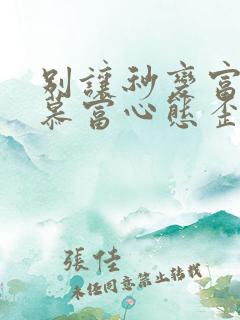 别讓秒變富
慕富心態歪
張佳
未经同意禁止转载